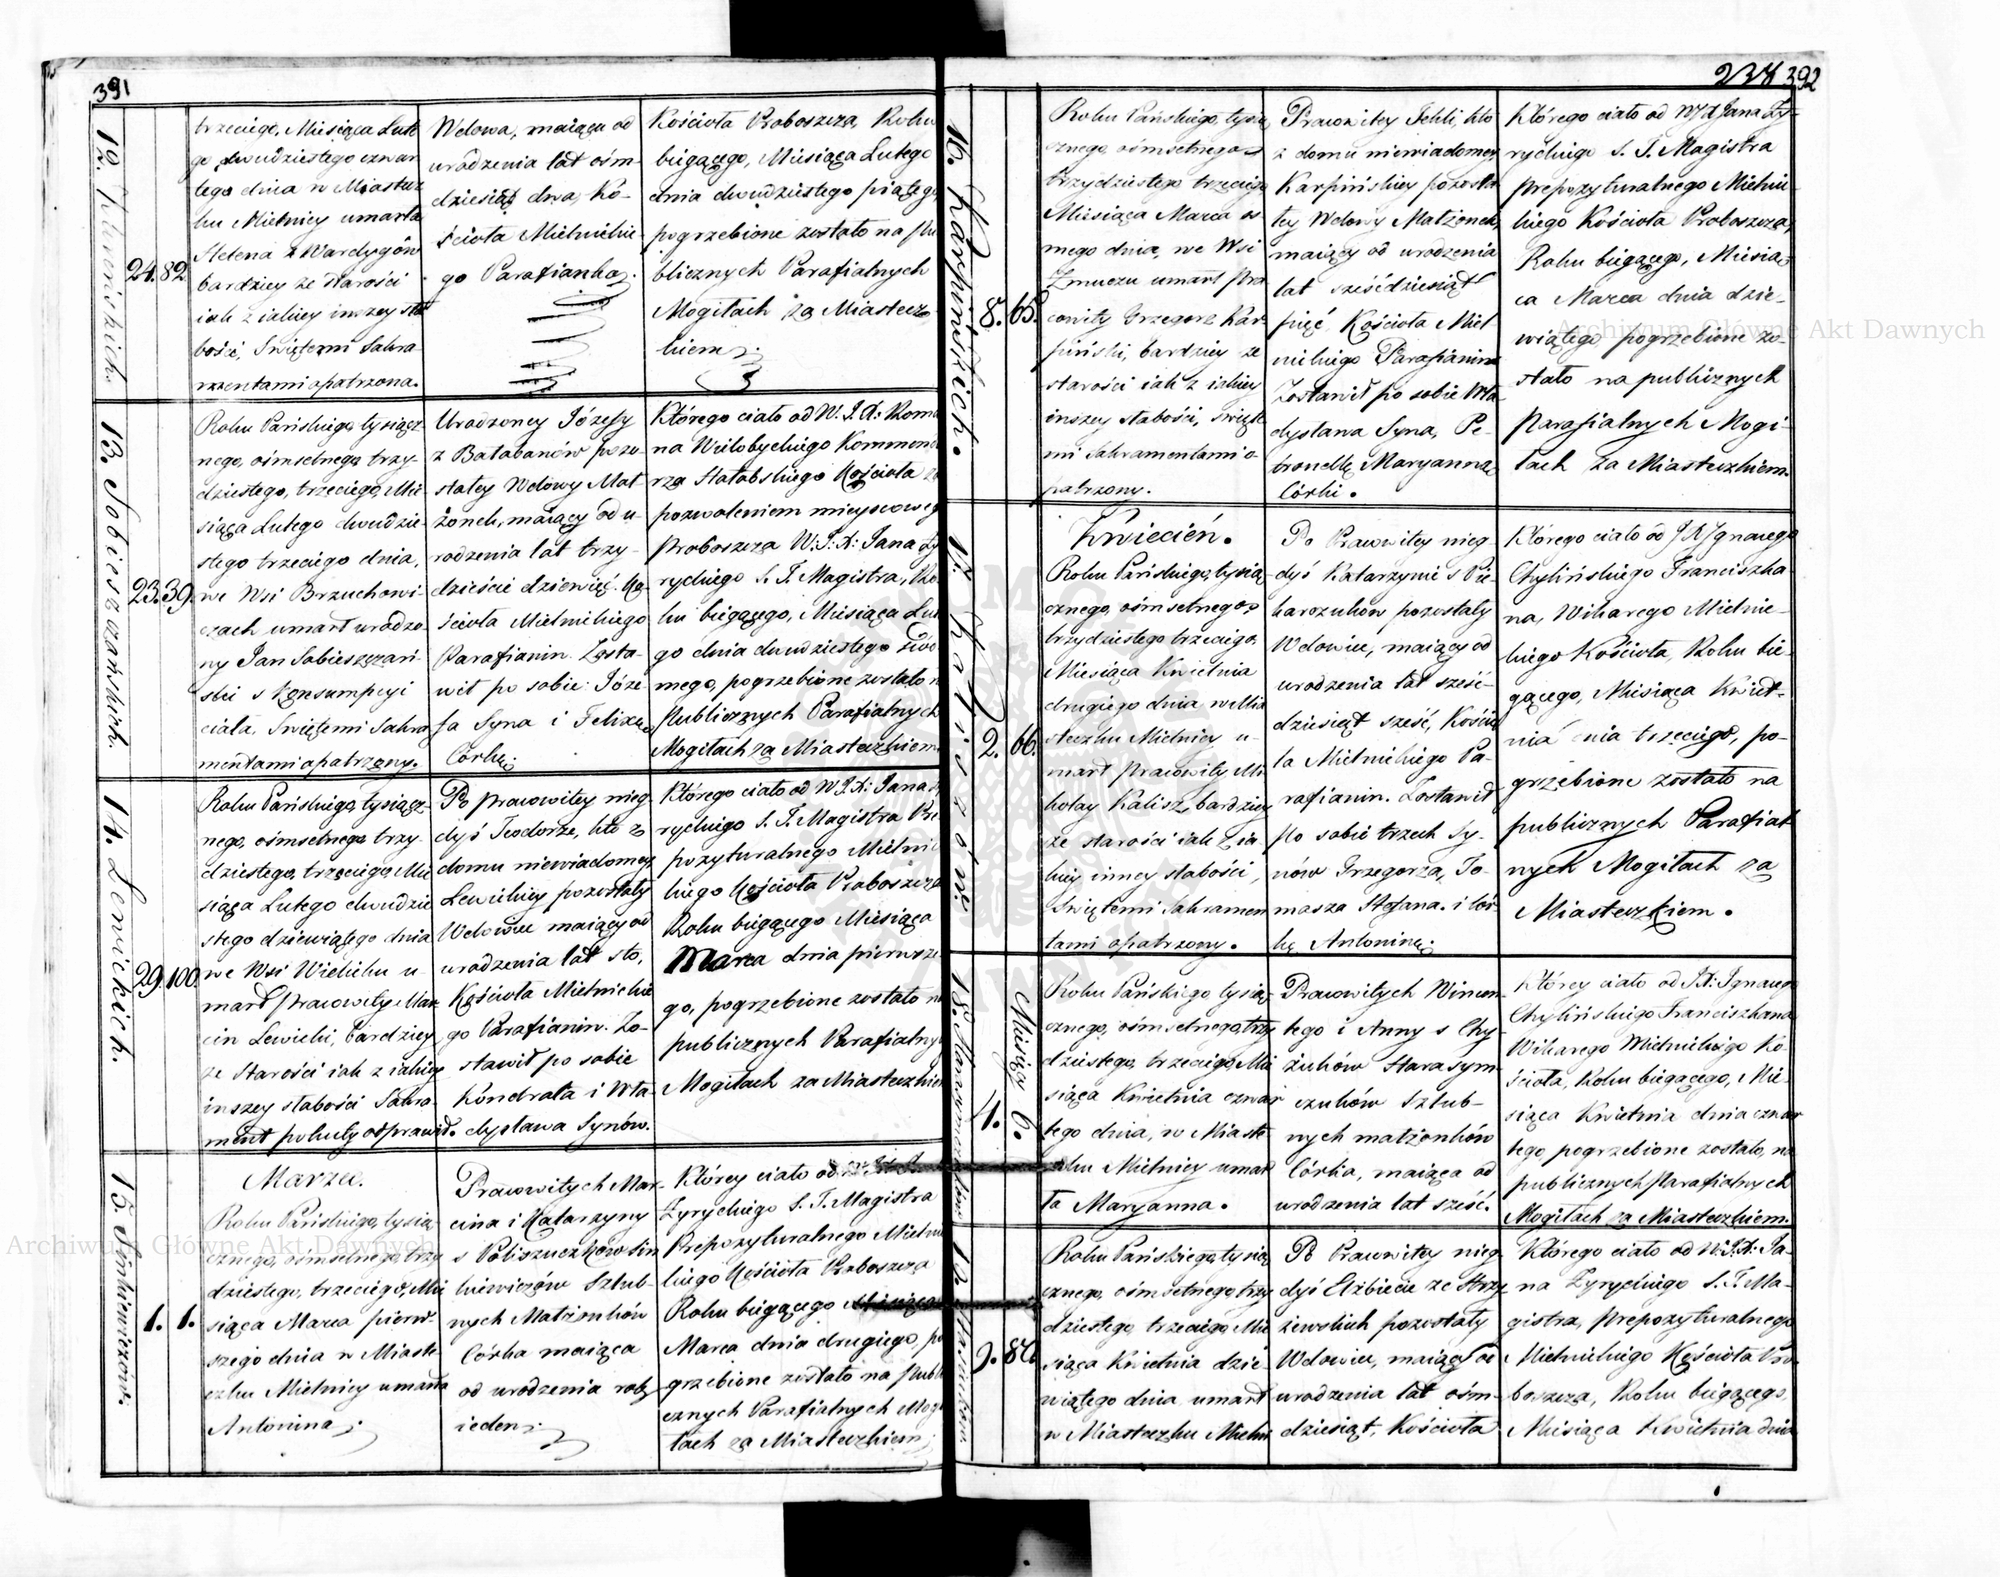 391
12. Klimińskich.
24. 82
trzeciego, Miesiąca Lute
go dwudziestego czwar
tego dnia w Miastecz
ku Mielnicy umarła
Helena z Wardygów
bardziey ze starości
iak z iakiey inszey sła
bości, Świętemi Sakra
mentami opatrzona.
Wdowa, maiąca od
urodzenia lat ośm-
dziesiąt dwa, Ko-
ścioła Mielnickie
go Parafianka.
Kościoła Proboszcza, Roku
biegącego, Miesiąca Lutego
dnia dwudziestego piątego,
pogrzebione zostało na pu
blicznych Parafialnych
Mogiłach za Miastecz
kiem.
13. Sobieszczańskich.
23. 39.
Roku Pańskiego, tysiącz
nego, ośmsetnego, trzy-
dziestego, trzeciego, Mie
siąca Lutego dwudzie-
stego trzeciego dnia,
we Wsi Brzuchowi-
czach umarł urodzo-
ny Jan Sobieszczań-
ski s konsumpcyi
ciała, Świętemi Sakra
mentami opatrzony.
Urodzoney Józefy
z Bałabanów pozo-
stałey Wdowy Mał
żonek, maiący od u-
rodzenia lat trzy-
dzieście dziewięć. Ko-
ścioła Mielnickiego
Parafianin. Zosta-
wił po sobie: Józe-
fa Syna i Felixę
Córkę.
Którego ciało od W. J. X: Roma
na Wielobyckiego Kommenda
rza Hołobskiego Kościoła za
pozwoleniem mieyscowego
Proboszcza W: J: X: Jana Ży
ryckiego S. T. Magistra, Ro
ku biegącego, Miesiąca Lute
go dnia dwudziestego siód
mego, pogrzebione zostało n
Publicznych Parafialnych
Mogiłach za Miasteczkiem.
14. Lewickich.
29. 100.
Roku Pańskiego, tysiącz-
nego, ośmsetnego, trzy-
dziestego, trzeciego, Mie
siąca Lutego dwudzie
stego dziewiątego dnia
we Wsi Wielicku u-
marł pracowity Mar
cin Lewicki, bardziey
ze Starości iak z iakiey
inszey słabości Sakra-
ment pokuty odprawił.
Po pracowitey nieg-
dyś Teodorze, kto z
domu niewiadomey
Lewickiey pozostały
Wdowiec maiący od
urodzenia lat sto,
Kościoła Mielnickie
go Parafianin. Zo-
stawił po sobie
Kondrata i Wła-
dysława Synów.
Którego ciało od W. J. X: Jana Ży
ryckiego S. T. Magistra Pre
pozyturalnego Mielnic
kiego Kościoła Proboszcza
Roku biegącego Miesiąca
Marca dnia pierwsze-
go, pogrzebione zostało na
publicznych Parafialny
Mogiłach za Miasteczkiem
15. Sinkiewiczów.
1. 1.
Marzec.
Roku Pańskiego, tysią-
cznego, ośmsetnego, trzy
dziestego, trzeciego, Mie
siąca Marca pierw-
szego dnia w Miaste-
czku Mielnicy umarła
Antonina.
Pracowitych Mar-
cina i Katarzyny
s Poliszuczków Sin
kiewiczów Szlub-
nych Małżonków
Córka maiąca
od urodzenia rok
ieden.
Którey ciało od W. J. X.
Żyryckiego S. T. Magistra
Prepozyturalnego Mielnic
kiego Kościoła Proboszcza
Roku biegącego Miesiąca
Marca dnia drugiego, po
grzebione zostało na Publi
cznych Parafialnych Mogi
łach za Miasteczkiem.
238 392
16. Karpińskich.
8. 65.
Roku Pańskiego, tysią
cznego, ośmsetnego
trzydziestego trzeciego
Miesiąca Marca os-
mego dnia, we Wsi
Zmuczu umarł Pra
cowity Grzegorz Kar
piński, bardziey ze
starości iak z iakiey
inszey słabości, Święte
mi Sakramentami o
patrzony.
Pracowitey Tekli, kto
z domu niewiadomey
Karpińskiey pozosta
łey Wdowy Małżonek,
maiący od urodzenia
lat sześćdziesiąt
pięć, Kościoła Miel
nickiego Parafianin
Zostawił po sobie Wła
dysława Syna, Pe-
tronellę, Maryannę
Córki.
Którego ciało od W. J. X Jana Ży-
ryckiego S. T. Magistra
Prepozyturalnego Mielnic
kiego Kościoła Proboszcza,
Roku biegącego, Miesią
ca Marca dnia dzie-
wiątego pogrzebione zo-
stało na publicznych
Parafialnych Mogi-
łach za Miasteczkiem.
17. Kaliszów.
2. 66.
Kwiecień.
Roku Pańskiego, tysią
cznego, ośmsetnego,
trzydziestego trzeciego,
Miesiąca Kwietnia
drugiego dnia w Mia
steczku Mielnicy u-
marł pracowity Mi
kołay Kalisz, bardziey
ze starości iak z ia
kiey inney słabości,
Świętemi Sakramen
tami opatrzony.
Po Pracowitey nieg
dyś Katarzynie s Pie
karczuków pozostały
Wdowiec, maiący od
urodzenia lat sześć-
dziesiąt sześć, Kościo
ła Mielnickiego Pa-
rafianin. Zostawił
po sobie trzech Sy-
nów Grzegorza, To-
masza Stefana. i Cór-
kę Antoninę.
Którego ciało od J X Ignacego
Chylińskiego Franciszka
na, Wikarego Mielnic-
kiego Kościoła, Roku bie-
gącego, Miesiąca Kwiet-
nia dnia trzeciego, po-
grzebione zostało na
publicznych Parafial
nych Mogiłach za
Miasteczkiem.
Mieięcy
4. 6.
Roku Pańskiego, tysią
cznego, ośmsetnego, trzy
dziestego, trzeciego, Mie
siąca Kwietnia czwar
tego dnia, w Miaste
czku Mielnicy umar
ła Maryanna.
Pracowitych Wincen-
tego i Anny s Chy-
żuków Harasym
czuków Szlub-
nych małżonków
Córka, maiąca od
urodzenia lat sześć.
Którey ciało od J. X: Ignacego
Chylińskiego Franciszkana
Wikarego Mielnickiego Ko-
ścioła, Roku biegącego, Mie-
siąca Kwietnia dnia czwar
tego pogrzebione zostało, na
publicznych Parafialnych
Mogiłach za Miasteczkiem.
9. 80.
Roku Pańskiego, tysią
cznego, ośmsetnego, trzy
dziestego, trzeciego, Mie
siąca Kwietnia dzie-
wiątego dnia, umarł
w Miasteczku Mielni
Po Pracowitey nieg
dyś Elżbiecie ze Strzy
żewskich pozostały
Wdowiec, maiący od
urodzenia lat ośm-
dziesiąt, Kościoła
Którego ciało od W: J. X: Ja-
na Żyryckiego S. T. Ma-
gistra, Prepozyturalnego
Mielnickiego Kościoła Pro-
boszcza, Roku biegącego,
Miesiąca Kwietnia dnia
Archiwum Główne Akt Dawnych
Archiwum Główne Akt Dawnych